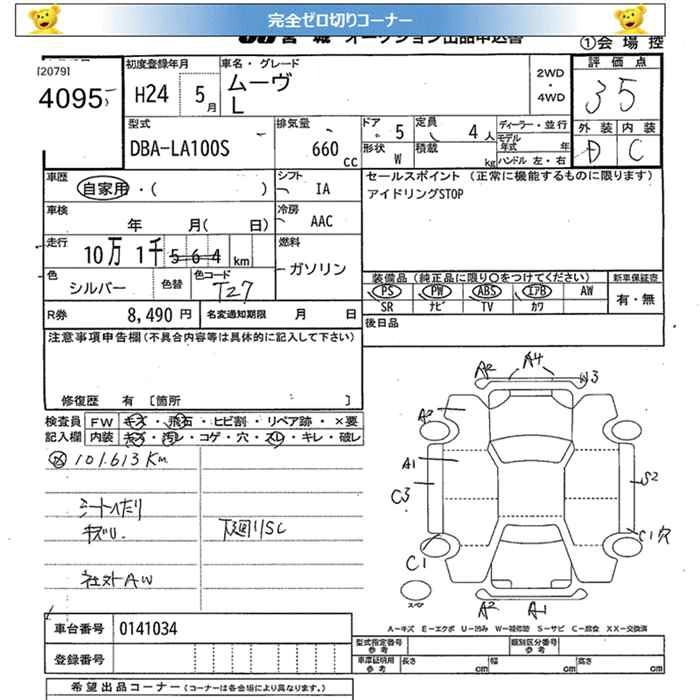 完全ゼロ切りコーナー
宮城 オークション出品申込書
①会場控
[2079]
4095
初度登録年月
H24 5月
車名・グレード
ムーヴ
L
2WD
・
4WD
評価点
35
外装 内装
D C
型式
DBA-LA100S
排気量
660cc
ドア
5
定員
4人
形状
W
積載
kg
ディーラー・並行
モデル年式 年
ハンドル 左・右
車歴
自家用・( )
シフト
IA
車検
年 月( 日)
冷房
AAC
走行
10万1千564km
燃料
ガソリン
色
シルバー
色替
色コード
T27
R券
8,490円
名変通知期限 月 日
セールスポイント (正常に機能するものに限ります)
アイドリングSTOP
装備品(純正品に限り○をつけてください)
新車保証書
PS PW ABS エアB AW
SR ナビ TV カワ
有・無
後日品
注意事項申告欄(不具合内容等は具体的に記入して下さい)
修復歴 有 [箇所 ]
検査員記入欄
FW キズ・飛石・ヒビ割・リペア跡・×要
内装 キズ・汚レ・コゲ・穴・スレ・キレ・破レ
101.613Km
シートへたり
キズU.
下廻りSC
社外AW
A2 A4 W3
A2
A1
C3
S2
C1
C1穴
スペア
A2 A1
A-キズ E-エクボ U-凹み W-補修跡 S-サビ C-腐食 XX-交換済
車台番号
0141034
登録番号
型式指定番号
参考
類別区分番号
参考
車庫証明用
参考
長さ cm
幅 cm
高さ cm
希望出品コーナー(コーナーは各会場により異なります。)